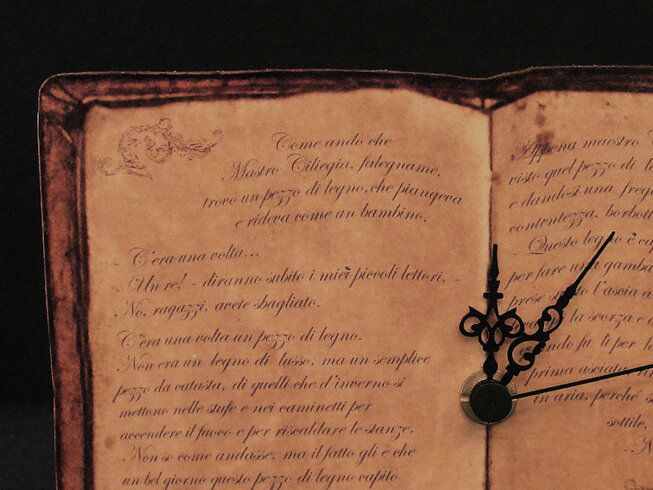 Come andò che
Mastro Ciliegia, falegname,
trovò un pezzo di legno, che piangeva
e rideva come un bambino.
C'era una volta...
Un re! - diranno subito i miei piccoli lettori. -
No, ragazzi, avete sbagliato.
C'era una volta un pezzo di legno.
Non era un legno di lusso, ma un semplice
pezzo da catasta, di quelli che d'inverno si
mettono nelle stufe e nei caminetti per
accendere il fuoco e per riscaldare le stanze.
Non so come andasse, ma il fatto gli è che
un bel giorno questo pezzo di legno capitò
Appena maestro
visto quel pezzo di
e dandosi una
contentezza, borbott
- Questo legno è
per fare una gamba
prese subito l'ascia
la scorza e
quando fu lì per
prima asciata
in aria, perché
sottile,